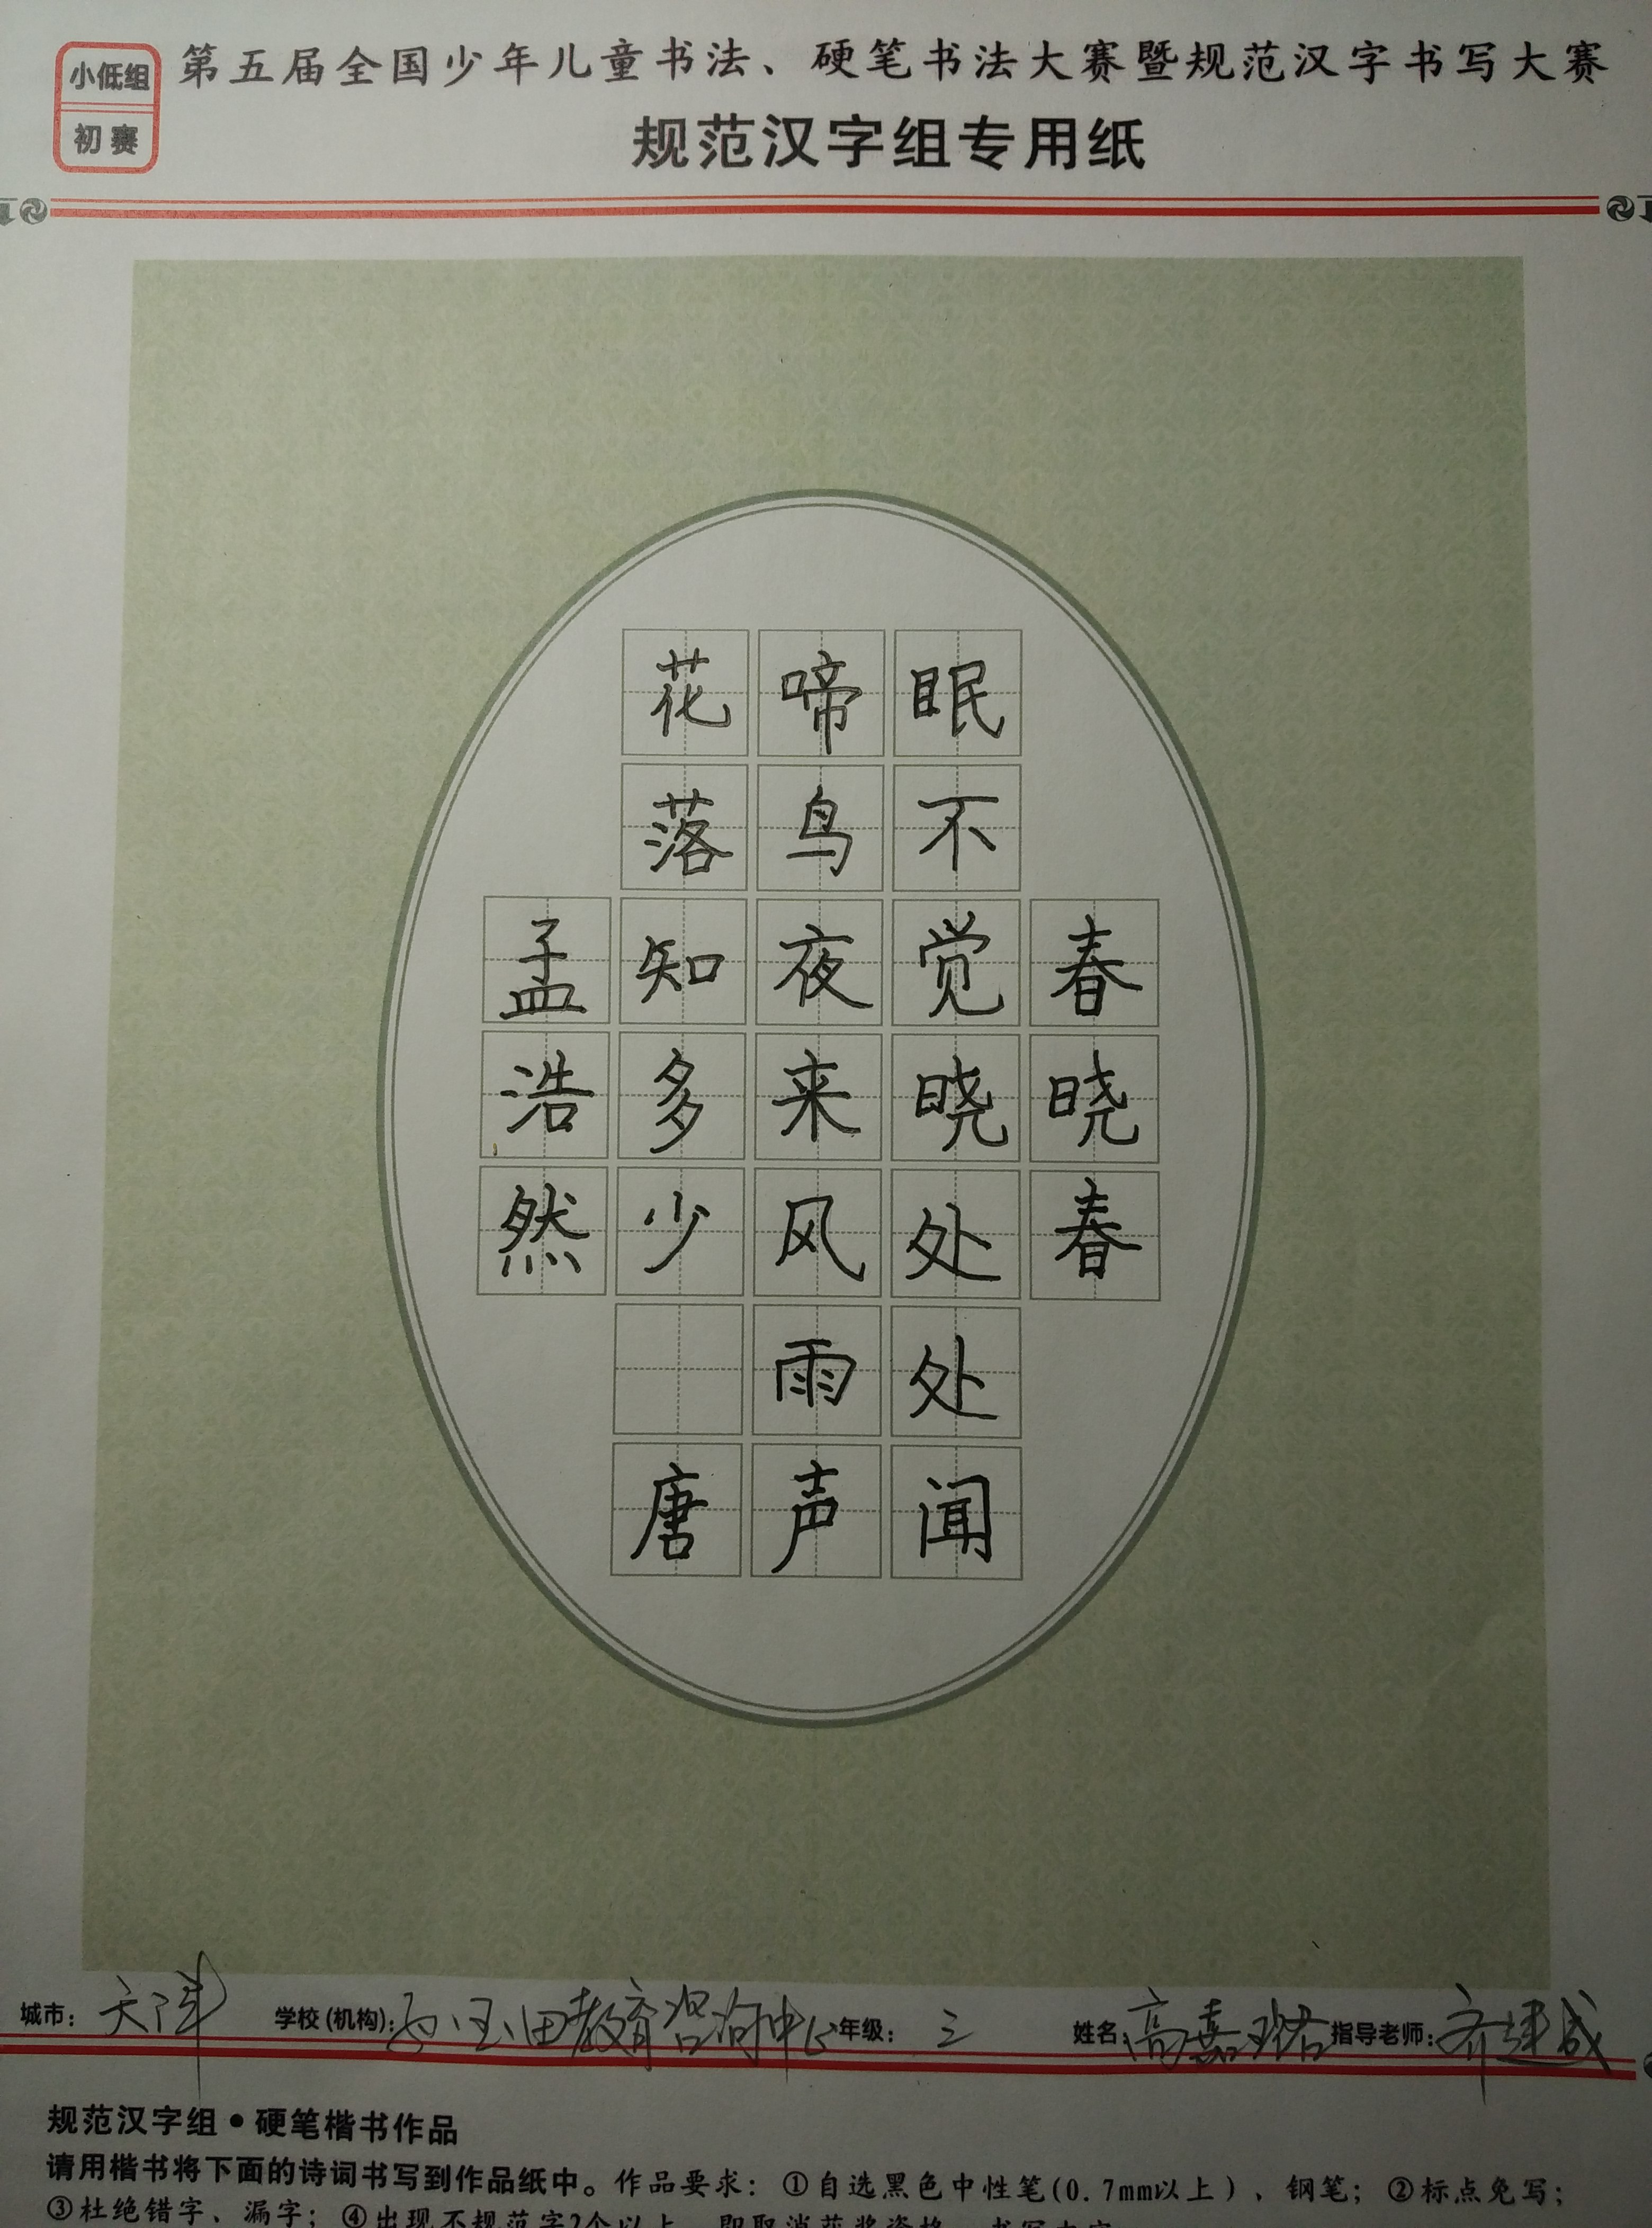 小低组
初赛
第五届全国少年儿童书法、硬笔书法大赛暨规范汉字书写大赛
规范汉字组专用纸
春晓春
眠不觉晓处处闻
啼鸟夜来风雨声
花落知多少 唐
孟浩然
城市：天津 学校(机构)：玉田教育咨询中心 年级：三 姓名：高嘉珞 指导老师：齐建成
规范汉字组•硬笔楷书作品
请用楷书将下面的诗词书写到作品纸中。作品要求：①自选黑色中性笔(0.7mm以上)、钢笔；②标点免写；
③杜绝错字、漏字；④出现不规范字2个以上，即取消获奖资格。书写内容